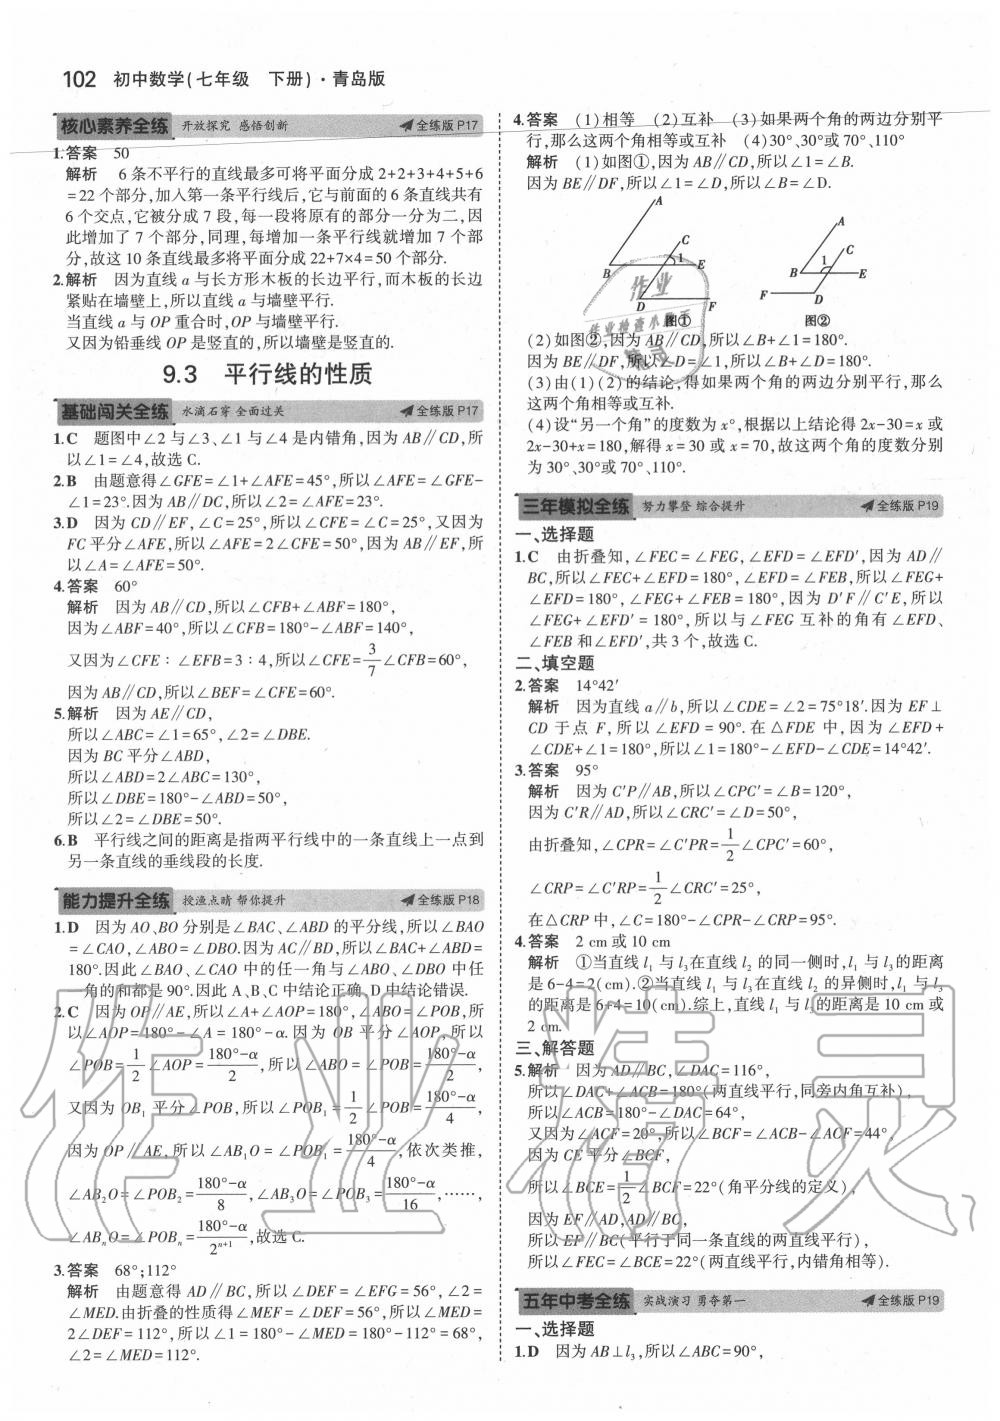 102 初中数学(七年级 下册)·青岛版
核心素养全练 开放探究 感悟创新 全练版 P17
1.答案 50
解析 6 条不平行的直线最多可将平面分成 2+2+3+4+5+6
=22 个部分,加入第一条平行线后,它与前面的 6 条直线共有
6 个交点,它被分成 7 段,每一段将原有的部分一分为二,因
此增加了 7 个部分,同理,每增加一条平行线就增加 7 个部
分,故这 10 条直线最多将平面分成 22+7×4=50 个部分.
2.解析 因为直线 a 与长方形木板的长边平行,而木板的长边
紧贴在墙壁上,所以直线 a 与墙壁平行.
当直线 a 与 OP 重合时,OP 与墙壁平行.
又因为铅垂线 OP 是竖直的,所以墙壁是竖直的.
9.3 平行线的性质
基础闯关全练 水滴石穿 全面过关 全练版 P17
1.C 题图中∠2 与∠3、∠1 与∠4 是内错角,因为 AB∥CD,所
以∠1=∠4,故选 C.
2.B 由题意得∠GFE=∠1+∠AFE=45°,所以∠AFE=∠GFE-
∠1=23°.因为 AB∥DC,所以∠2=∠AFE=23°.
3.D 因为 CD∥EF,∠C=25°,所以∠CFE=∠C=25°,又因为
FC 平分∠AFE,所以∠AFE=2∠CFE=50°,因为 AB∥EF,所
以∠A=∠AFE=50°.
4.答案 60°
解析 因为 AB∥CD,所以∠CFB+∠ABF=180°,
因为∠ABF=40°,所以∠CFB=180°-∠ABF=140°,
又因为∠CFE∶∠EFB=3∶4,所以∠CFE=3/7∠CFB=60°,
因为 AB∥CD,所以∠BEF=∠CFE=60°.
5.解析 因为 AE∥CD,
所以∠ABC=∠1=65°,∠2=∠DBE.
因为 BC 平分∠ABD,
所以∠ABD=2∠ABC=130°,
所以∠DBE=180°-∠ABD=50°,
所以∠2=∠DBE=50°.
6.B 平行线之间的距离是指两平行线中的一条直线上一点到
另一条直线的垂线段的长度.
能力提升全练 授渔点睛 帮你提升 全练版 P18
1.D 因为 AO、BO 分别是∠BAC、∠ABD 的平分线,所以∠BAO
=∠CAO,∠ABO=∠DBO.因为 AC∥BD,所以∠BAC+∠ABD=
180°.因此∠BAO、∠CAO 中的任一角与∠ABO、∠DBO 中任一
角的和都是 90°.因此 A、B、C 中结论正确,D 中结论错误.
2.C 因为 OP∥AE,所以∠A+∠AOP=180°,∠ABO=∠POB,所
以∠AOP=180°-∠A=180°-α.因为 OB 平分∠AOP,所以
∠POB=1/2∠AOP=(180°-α)/2,所以∠ABO=∠POB=(180°-α)/2,
又因为 OB₁ 平分∠POB,所以∠POB₁=1/2∠POB=(180°-α)/4,
因为 OP∥AE,所以∠AB₁O=∠POB₁=(180°-α)/4,依次类推,
∠AB₂O=∠POB₂=(180°-α)/8,∠AB₃O=∠POB₃=(180°-α)/16,……,
∠ABₙO=∠POBₙ=(180°-α)/2ⁿ⁺¹,故选 C.
3.答案 68°;112°
解析 由题意得 AD∥BC,所以∠DEF=∠EFG=56°,∠2=
∠MED.由折叠的性质得∠MEF=∠DEF=56°,所以∠MED=
2∠DEF=112°,所以∠1=180°-∠MED=180°-112°=68°,
∠2=∠MED=112°.
4.答案 (1)相等 (2)互补 (3)如果两个角的两边分别平
行,那么这两个角相等或互补 (4)30°、30°或 70°、110°
解析 (1)如图①,因为 AB∥CD,所以∠1=∠B.
因为 BE∥DF,所以∠1=∠D,所以∠B=∠D.
A
C
B 1 E
D F
图①
A
C
B 1 E
F D
图②
(2)如图②,因为 AB∥CD,所以∠B+∠1=180°.
因为 BE∥DF,所以∠D=∠1,所以∠B+∠D=180°.
(3)由(1)(2)的结论,得如果两个角的两边分别平行,那么
这两个角相等或互补.
(4)设“另一个角”的度数为 x°,根据以上结论得 2x-30=x 或
2x-30+x=180,解得 x=30 或 x=70,故这两个角的度数分别
为 30°、30°或 70°、110°.
三年模拟全练 努力攀登 综合提升 全练版 P19
一、选择题
1.C 由折叠知,∠FEC=∠FEG,∠EFD=∠EFD′,因为 AD∥
BC,所以∠FEC+∠EFD=180°,∠EFD=∠FEB,所以∠FEG+
∠EFD=180°,∠FEG+∠FEB=180°,因为 D′F∥C′E,所以
∠FEG+∠EFD′=180°,所以与∠FEG 互补的角有∠EFD、
∠FEB 和∠EFD′,共 3 个,故选 C.
二、填空题
2.答案 14°42′
解析 因为直线 a∥b,所以∠CDE=∠2=75°18′.因为 EF⊥
CD 于点 F,所以∠EFD=90°.在△FDE 中,因为∠EFD+
∠CDE+∠1=180°,所以∠1=180°-∠EFD-∠CDE=14°42′.
3.答案 95°
解析 因为 C′P∥AB,所以∠CPC′=∠B=120°,
因为 C′R∥AD,所以∠CRC′=∠D=50°,
由折叠知,∠CPR=∠C′PR=1/2∠CPC′=60°,
∠CRP=∠C′RP=1/2∠CRC′=25°,
在△CRP 中,∠C=180°-∠CPR-∠CRP=95°.
4.答案 2 cm 或 10 cm
解析 ①当直线 l₁ 与 l₃在直线 l₂ 的同一侧时,l₁ 与 l₃的距离
是 6-4=2(cm).②当直线 l₁ 与 l₃在直线 l₂ 的异侧时,l₁ 与 l₃
的距离是 6+4=10(cm).综上,直线 l₁ 与 l₃的距离是 10 cm 或
2 cm.
三、解答题
5.解析 因为 AD∥BC,∠DAC=116°,
所以∠DAC+∠ACB=180°(两直线平行,同旁内角互补),
所以∠ACB=180°-∠DAC=64°,
又因为∠ACF=20°,所以∠BCF=∠ACB-∠ACF=44°,
因为 CE 平分∠BCF,
所以∠BCE=1/2∠BCF=22°(角平分线的定义),
因为 EF∥AD,AD∥BC,
所以 EF∥BC(平行于同一条直线的两直线平行),
所以∠FEC=∠BCE=22°(两直线平行,内错角相等).
五年中考全练 实战演习 勇夺第一 全练版 P19
一、选择题
1.D 因为 AB⊥l₃,所以∠ABC=90°,